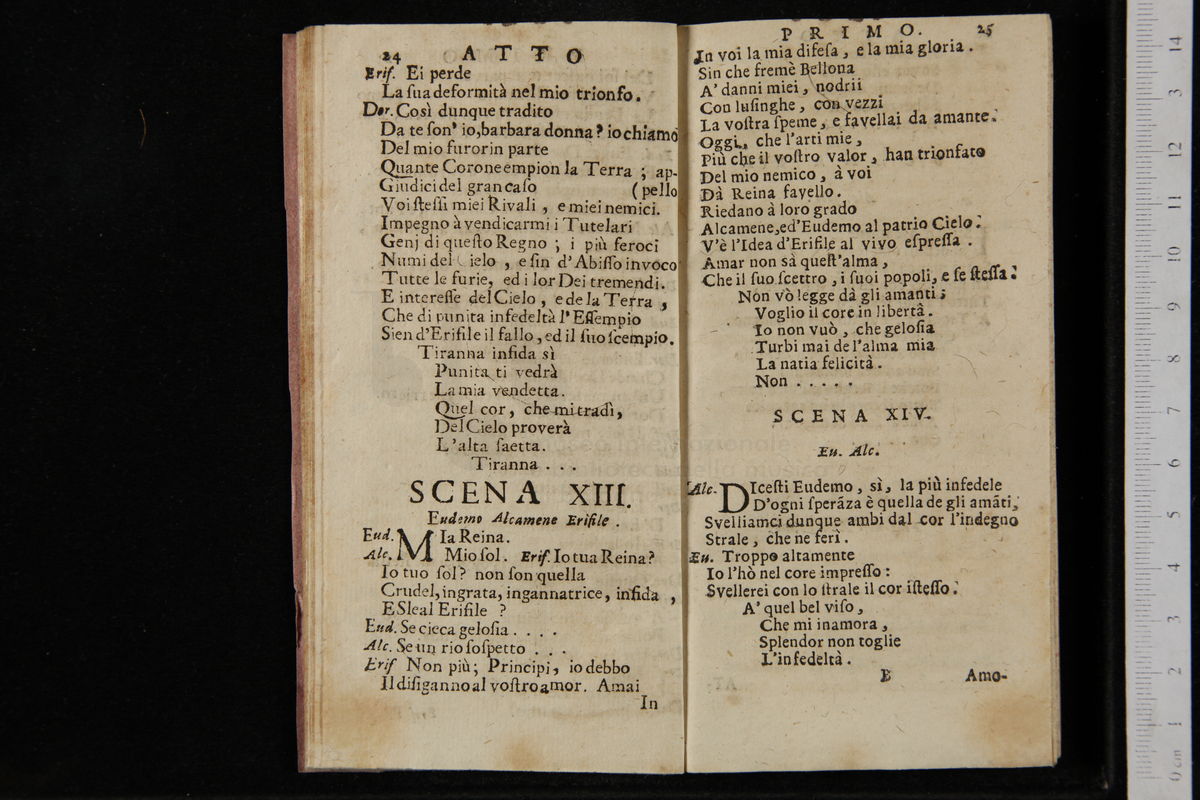 24 ATTO
Erif. Ei perde
La ſua deformità nel mio trionfo.
Dor. Così dunque tradito
Da te ſon' io, barbara donna? io chiamo
Del mio furor in parte
Quante Corone empion la Terra ; ap-
Giudici del gran caſo (pello
Voi ſteſſi miei Rivali , e miei nemici.
Impegno à vendicarmi i Tutelari
Genj di queſto Regno ; i più feroci
Numi del Cielo , e fin d'Abiſſo invoco
Tutte le furie, ed i lor Dei tremendi.
E intereſſe del Cielo , e de la Terra ,
Che di punita infedeltà l'Eſſempio
Sien d'Erifile il fallo , ed il ſuo ſcempio.
Tiranna infida sì
Punita ti vedrà
La mia vendetta.
Quel cor, che mi tradì,
Del Cielo proverà
L'alta ſaetta.
Tiranna . . .
SCENA XIII.
Eudemo Alcamene Erifile .
Eud. MIa Reina.
Alc. Mio ſol. Erif. Io tua Reina?
Io tuo ſol? non ſon quella
Crudel, ingrata, ingannatrice, infida ,
E Sleal Erifile ?
Eud. Se cieca geloſia . . . .
Alc. Se un rio ſoſpetto . . .
Erif Non più; Principi, io debbo
Il diſiganno al voſtro amor. Amai
In
PRIMO. 25
In voi la mia difeſa , e la mia gloria .
Sin che fremè Bellona
A' danni miei , nodrii
Con luſinghe , con vezzi
La voſtra ſpeme , e favellai da amante.
Oggi , che l'arti mie ,
Più che il voſtro valor , han trionfato
Del mio nemico , à voi
Dà Reina favello .
Riedano à loro grado
Alcamene, ed'Eudemo al patrio Cielo.
V'è l'Idea d'Erifile al vivo eſpreſſa .
Amar non sà queſt'alma ,
Che il ſuo ſcettro , i ſuoi popoli, e ſe ſteſſa.
Non vò legge dà gli amanti ;
Voglio il core in libertà .
Io non vuò , che geloſia
Turbi mai de l'alma mia
La natia felicità .
Non . . . . .
SCENA XIV.
Eu. Alc.
Alc. DIceſti Eudemo , sì , la più infedele
D'ogni ſperāza è quella de gli amāti,
Svelliamci dunque ambi dal cor l'indegno
Strale , che ne ferì .
Eu. Troppo altamente
Io l'hò nel core impreſſo :
Svellerei con lo ſtrale il cor iſteſſo.
A' quel bel viſo ,
Che mi inamora ,
Splendor non toglie
L'infedeltà .
E Amo-